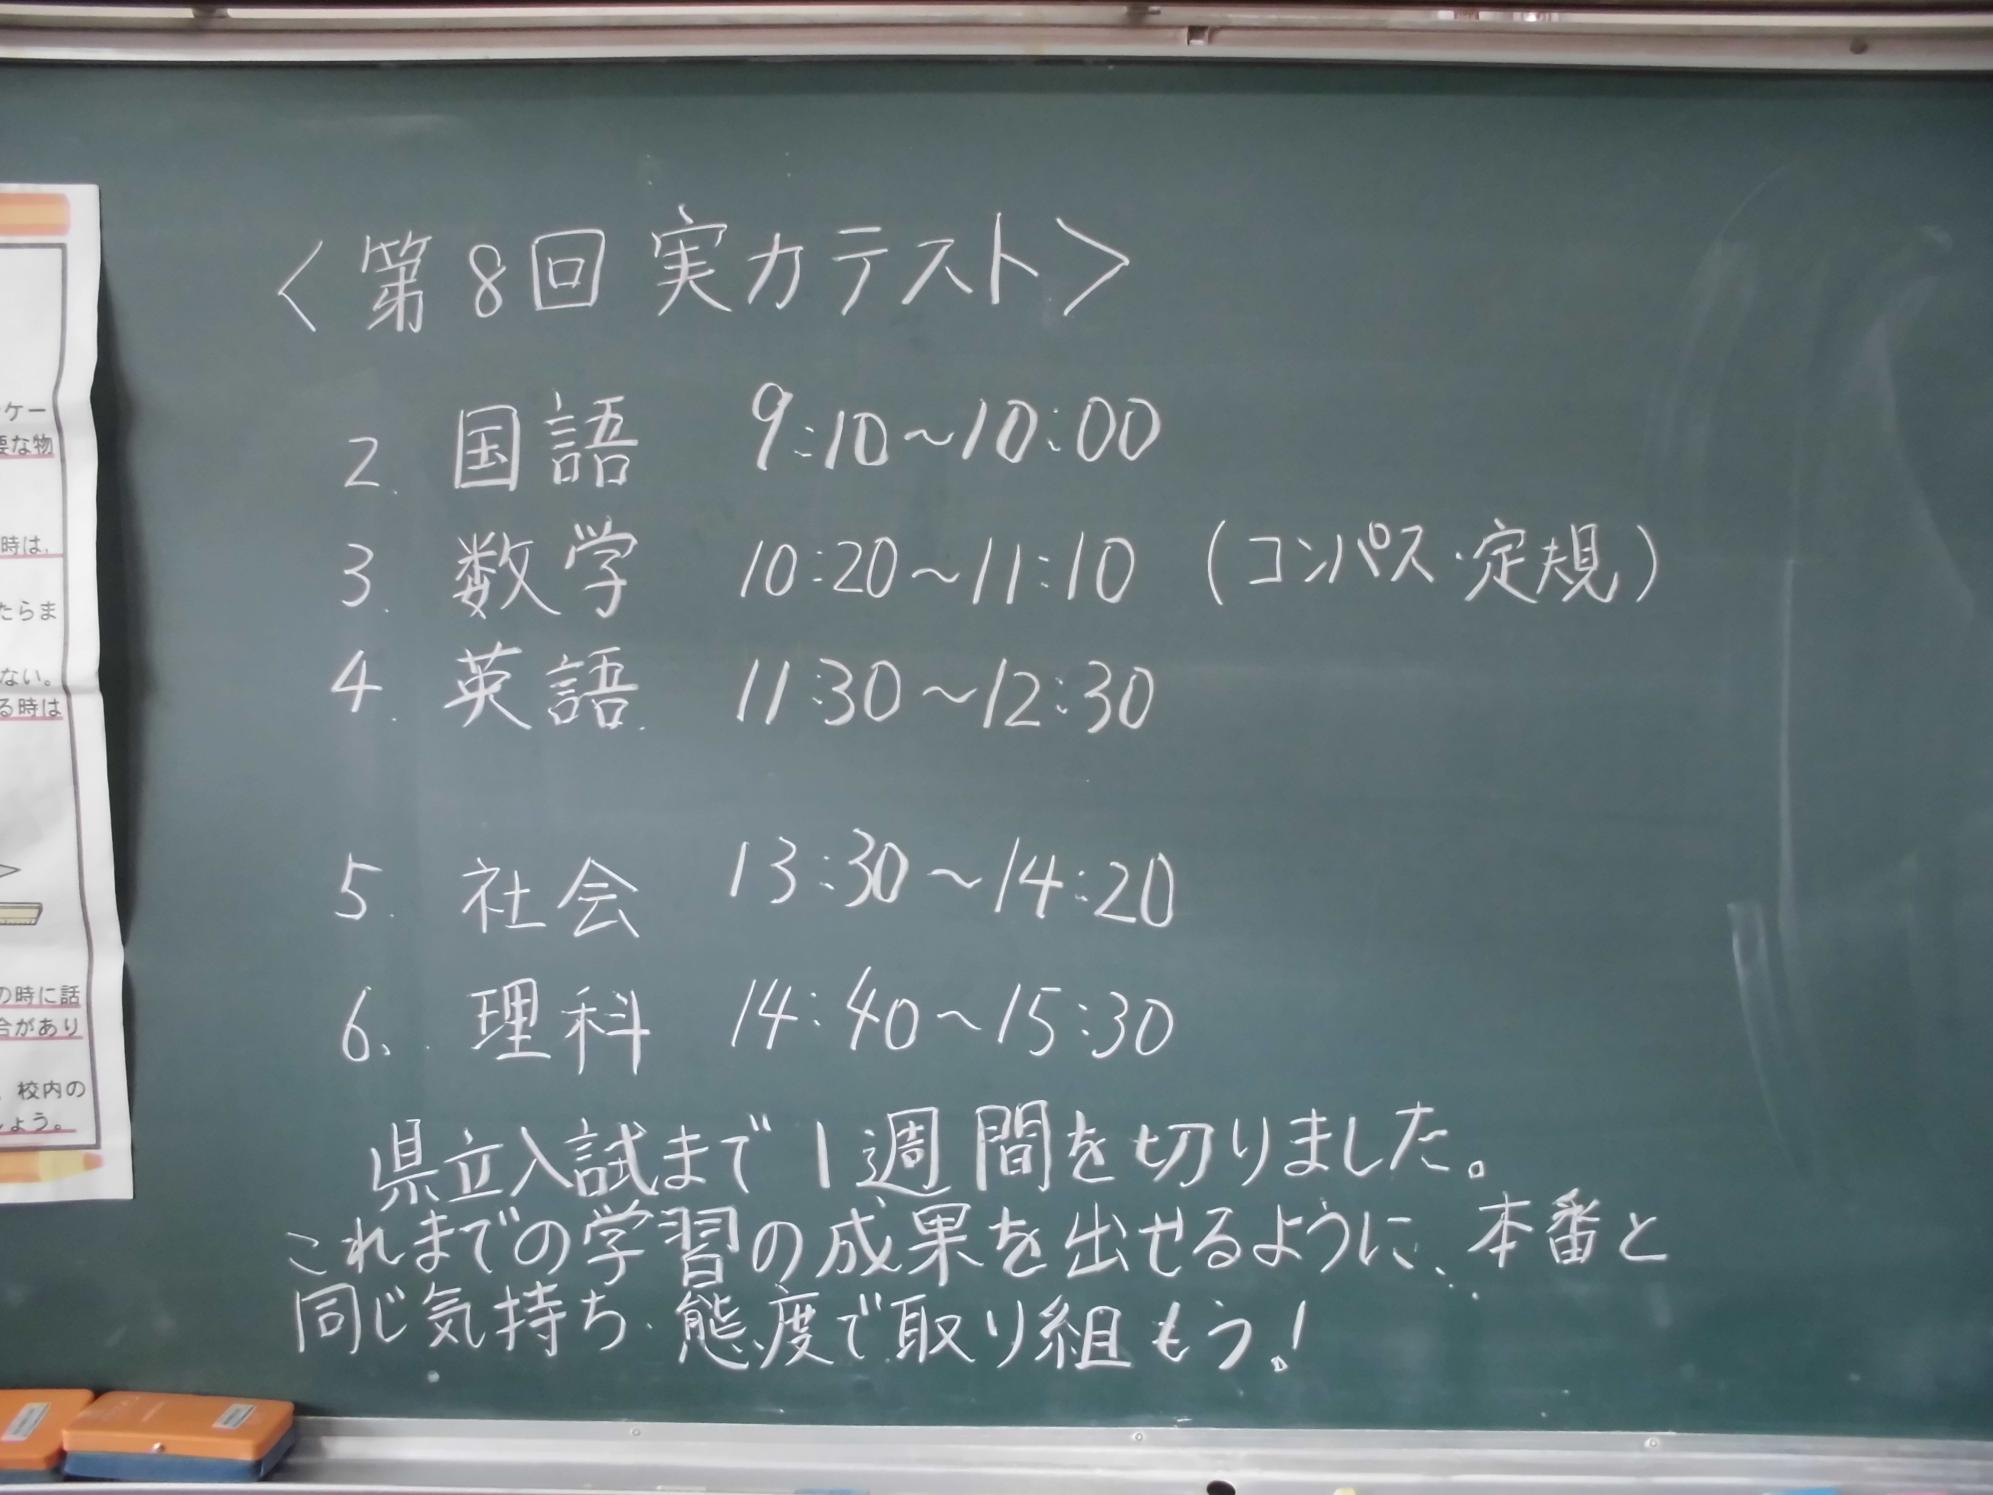 ケー
要な物
時は、
たらま
ない。
る時は
の時に話
合があり
、校内の
しょう。
〈第8回 実力テスト〉
2. 国語 9:10〜10:00
3. 数学 10:20〜11:10 (コンパス・定規)
4. 英語 11:30〜12:30
5. 社会 13:30〜14:20
6. 理科 14:40〜15:30
県立入試まで1週間を切りました。
これまでの学習の成果を出せるように、本番と
同じ気持ち・態度で取り組もう!